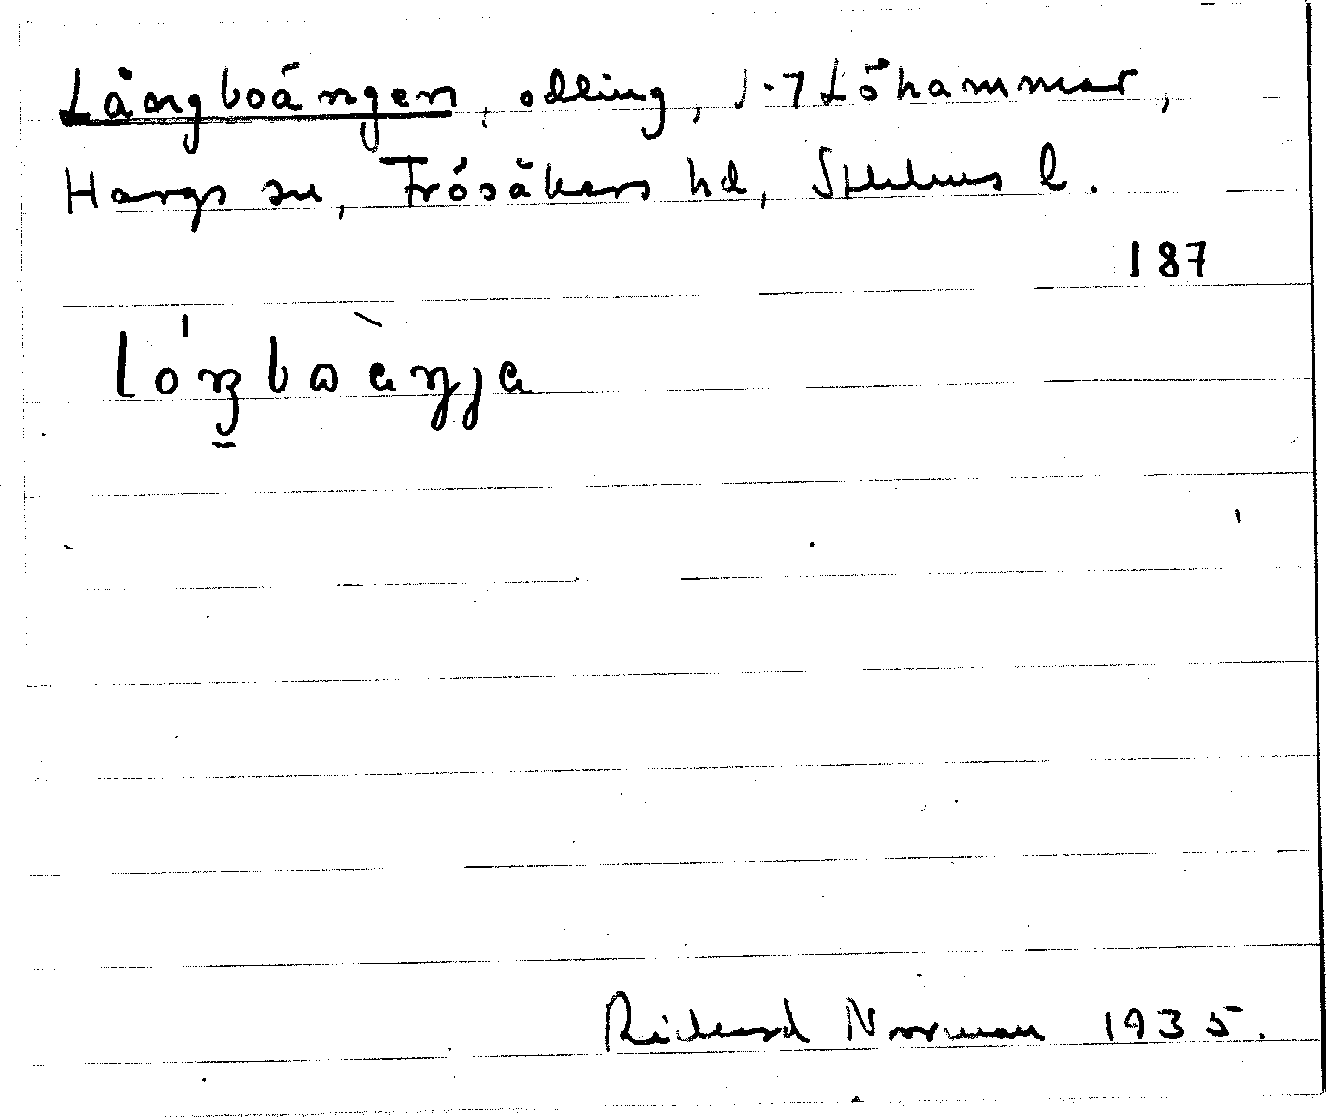 Långboängen, odling, 1-7 Löhammar,
Hargs sn, Frösåkers hd, Sthlms l.
187
Richard Norrman 1935.